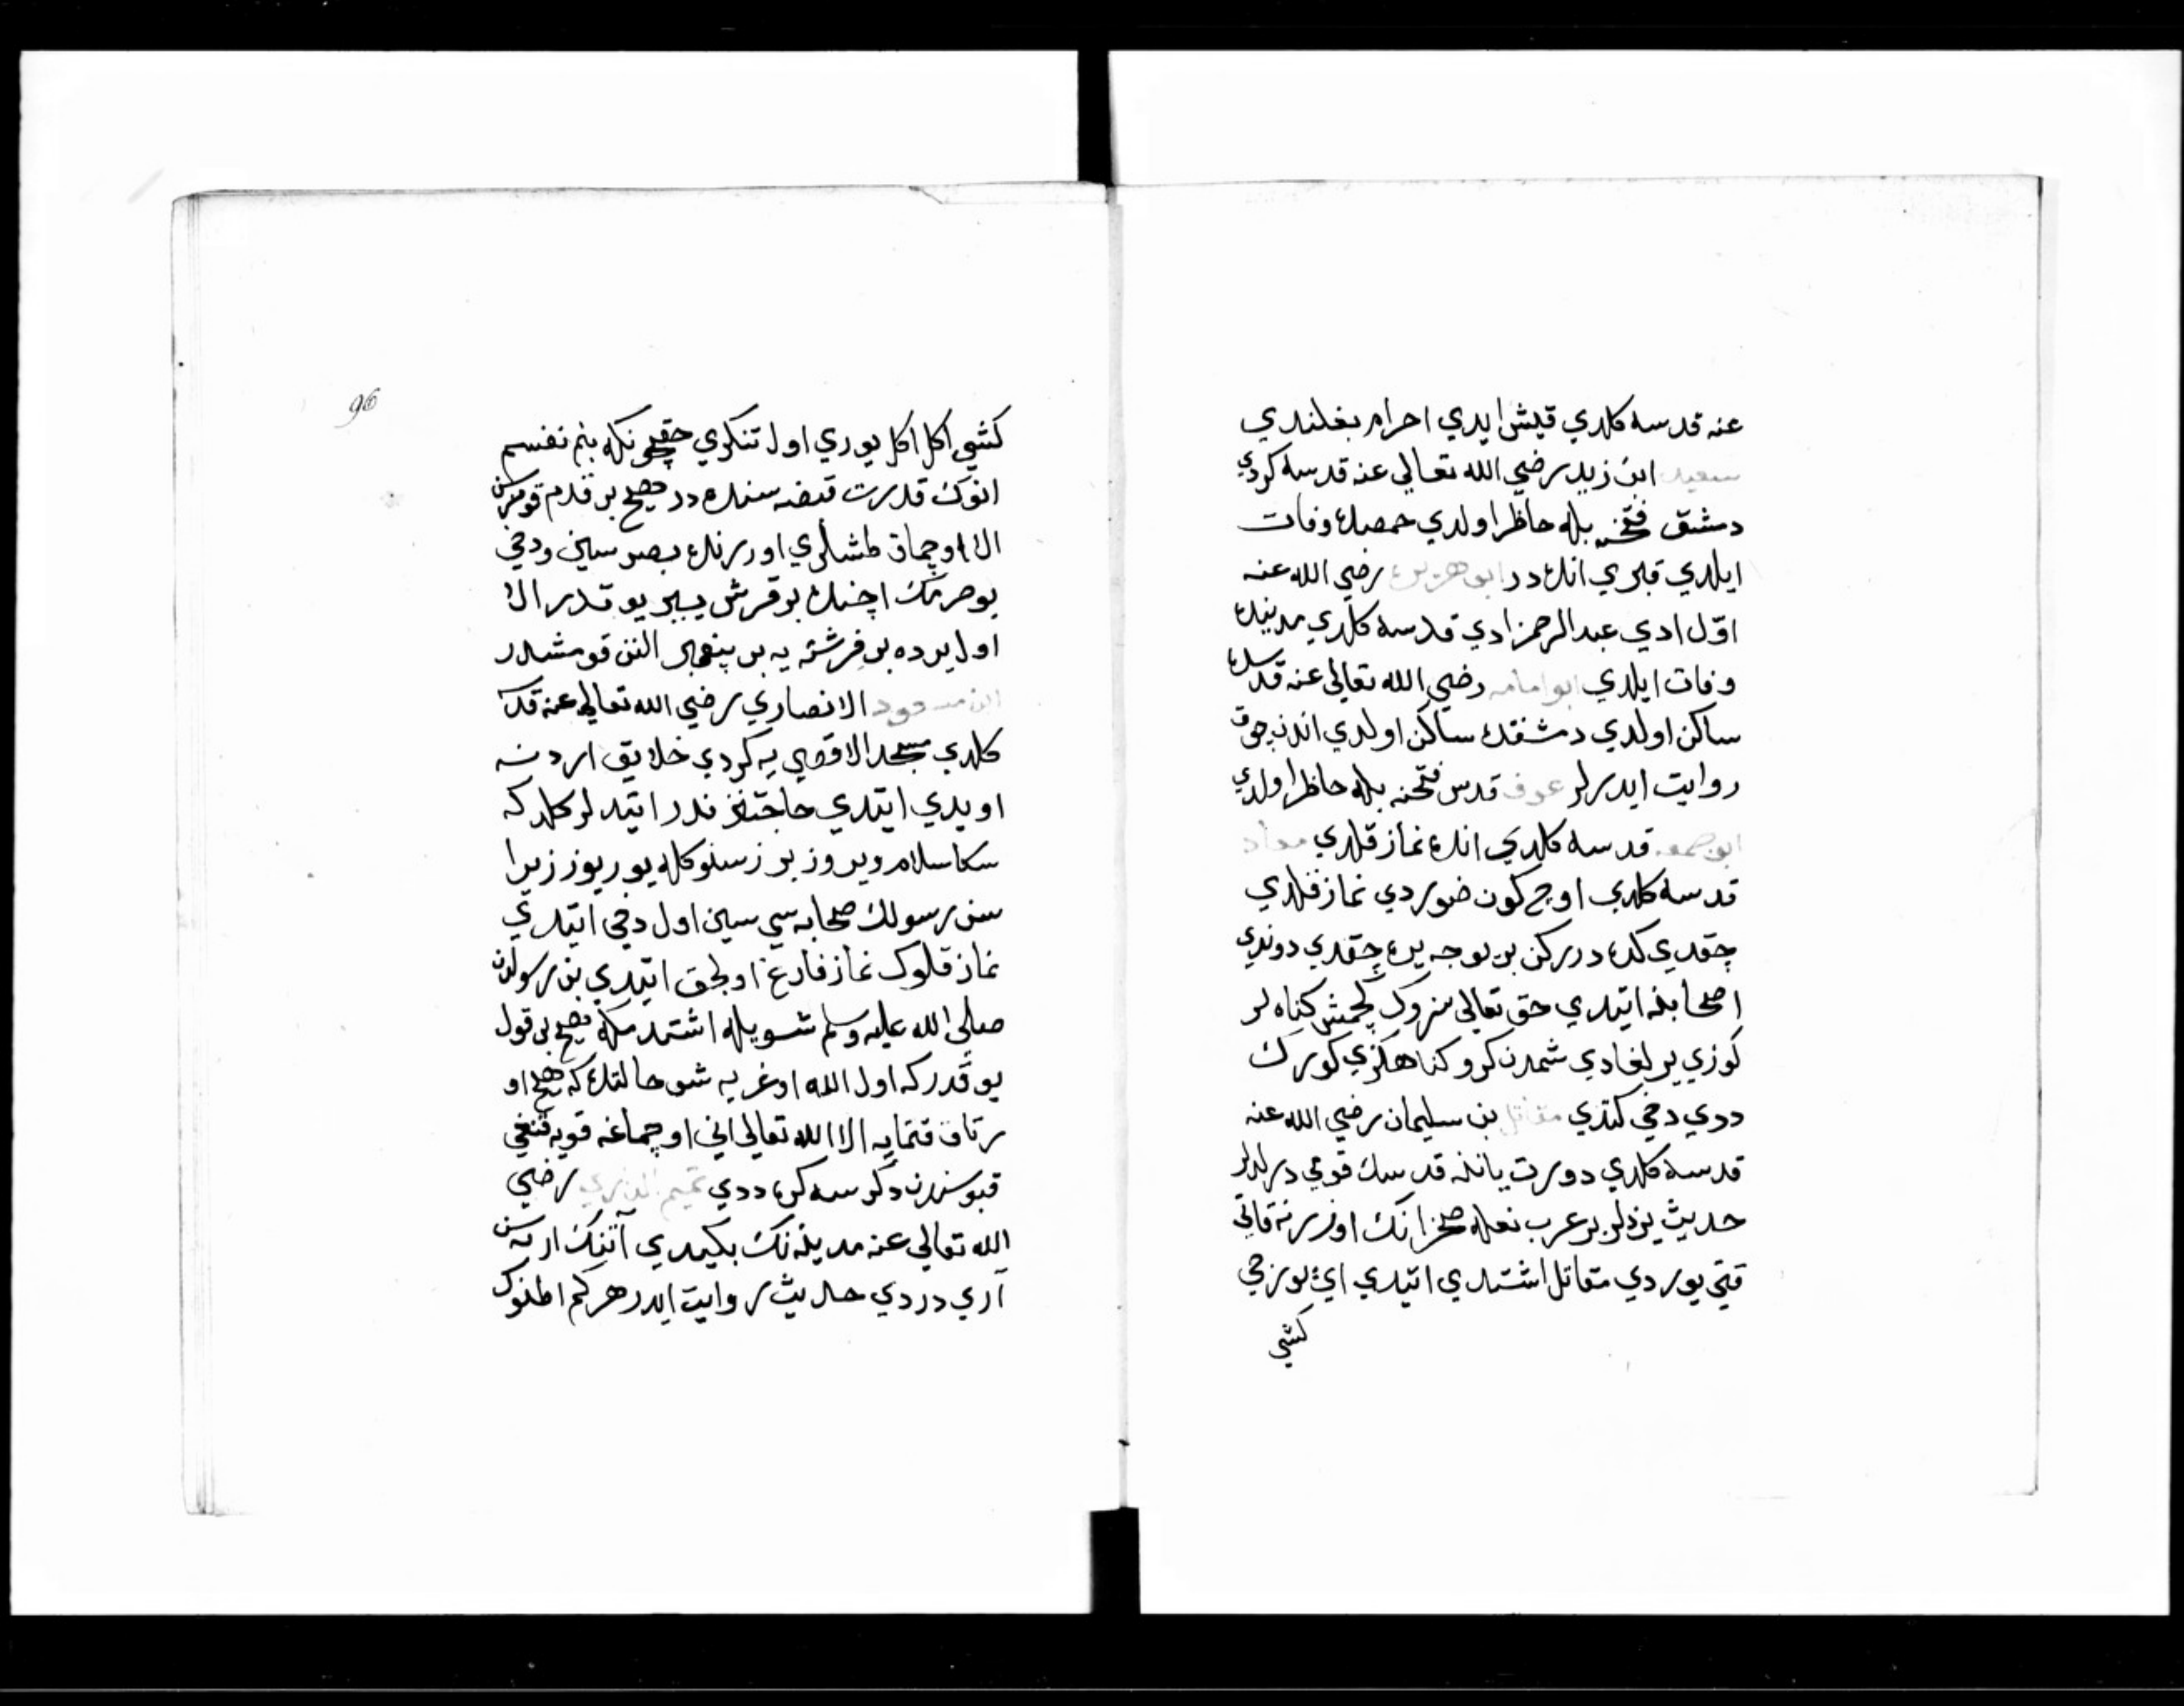 عنه قدسه كلدي قيش ايدي احرام بغلندي
سعيد ابن زيد رضي الله تعالى عنه قدسه كردي
دمشق فتحنه بله حاظر اولدي حمصده وفات
ايلدي قبري انده در ابو هريره رضي الله عنه
اوّل ادي عبد الرحمن ادي قدسه كلدي مدينده
وفات ايلدي ابو امامه رضي الله تعالى عنه قدسده
ساكن اولدي دمشقده ساكن اولدي اندن چوق
روايت ايدرلر عوف قدس فتحنه بله حاظر اولدي
ابو جمعه قدسه كلدي انده نماز قلدي معاد
قدسه كلدي اوچ كون ضوردي نماز قلدي
چقدي كده دركن بر يوجه يره چقدي دوندي
اصحابنه ايتدي حق تعالى سزوك كچمش كناه لر
كوزي يرلغادي شمدن كرو كناهكزي كورك
ددي دخي كتدي مقاتل بن سليمان رضي الله عنه
قدسه كلدي دورت ياننه قدسك قومي درلدلر
حديث يزدلر بر عرب نعله صخرانك اوزرنه قاتي
قتي يوردي مقاتل اشتدي ايتدي اي يورجي
كشي
96
كشي اكل اكل يوري اول تنكري حقيچونكه بنم نفسم
انوك قدرت قبضه سنده در هيچ بر قدم قومزسن
الا اوچماق طشلري اوزرنده بصرسين ودخي
بو حرمك ايچنده بر قرش يير يوقدر الا
اول يرده بر فرشته يه بر پيغمبر النن قومشلدر
ابن مسعود الانصاري رضي الله تعالى عنه قدسه
كلدي مسجد الاقصي يه كردي خلايق اردنه
اويدي ايتدي حاجتنز ندر ايتدلر كلدكه
سكا سلام ويروز بر زسنوكله يوريوز زيرا
سن رسولك صحابه سي سين اول دخي ايتدي
نماز قلوك نماز فارغ اولجق ايتدي بن رسولدن
صلى الله عليه وسلم شويله اشتمدمكه هيچ بر قول
يوقدركه اول الله اوغريه شو حالتده كه هيچ او
رتاق قتمايه الا الله تعالى اني اوچماغه قويه قنغي
قپوسندن دلرسه كره ددي تميم الداري رضي
الله تعالى عنه مدينه نك بكيدي آتنك اربه سن
آري دردي حديث روايت ايدر هركم اطنوك